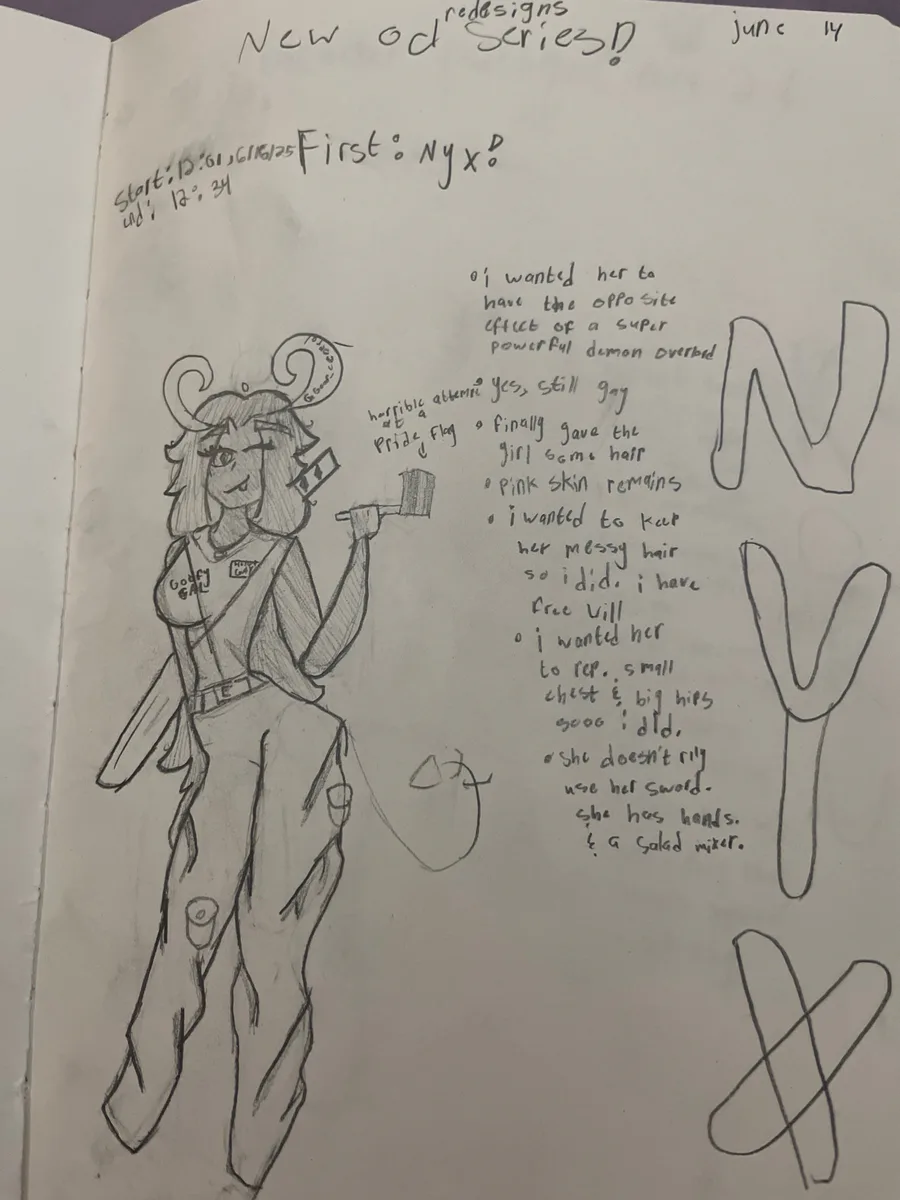 redesigns
New od Series!
june 14
Start: 12:01, 6/16/25
end: 12:34
First: Nyx!
• i wanted her to
have the opposite
effect of a super
powerful demon overlord
• yes, still gay
• finally gave the
girl some hair
• pink skin remains
• i wanted to keep
her messy hair
so i did. i have
free will
• i wanted her
to rep. small
chest & big hips
sooo i did.
• she doesn't rlly
use her sword.
she has hands.
& a salad mixer.
horrible attempt
at a
pride flag
GOOFY
GAL
N
Y
X